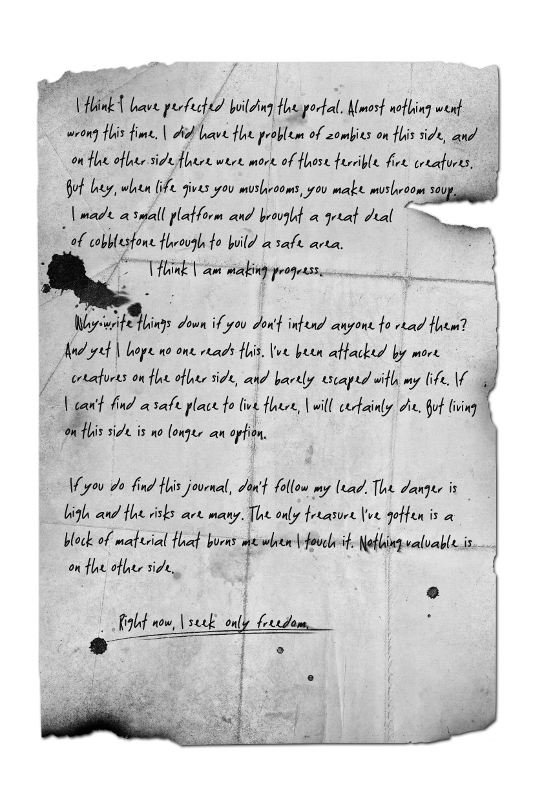 I think I have perfected building the portal. Almost nothing went
wrong this time. I did have the problem of zombies on this side, and
on the other side there were more of those terrible fire creatures.
But hey, when life gives you mushrooms, you make mushroom soup.
I made a small platform and brought a great deal
of cobblestone through to build a safe area.
I think I am making progress.
Why write things down if you don't intend anyone to read them?
And yet I hope no one reads this. I've been attacked by more
creatures on the other side, and barely escaped with my life. If
I can't find a safe place to live there, I will certainly die. But living
on this side is no longer an option.
If you do find this journal, don't follow my lead. The danger is
high and the risks are many. The only treasure I've gotten is a
block of material that burns me when I touch it. Nothing valuable is
on the other side.
Right now, I seek only freedom.